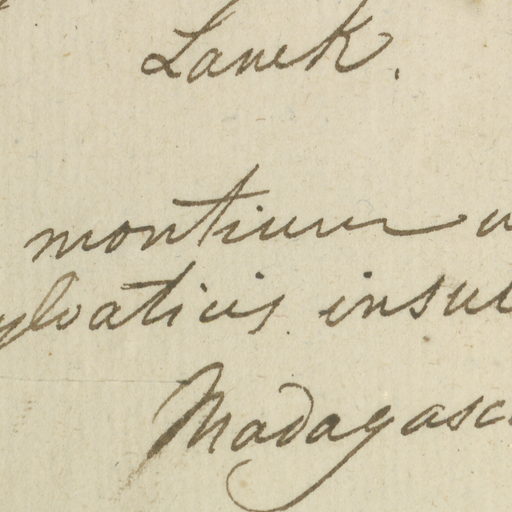 Lamk.
montium
ylvaticis insul
Madagasc